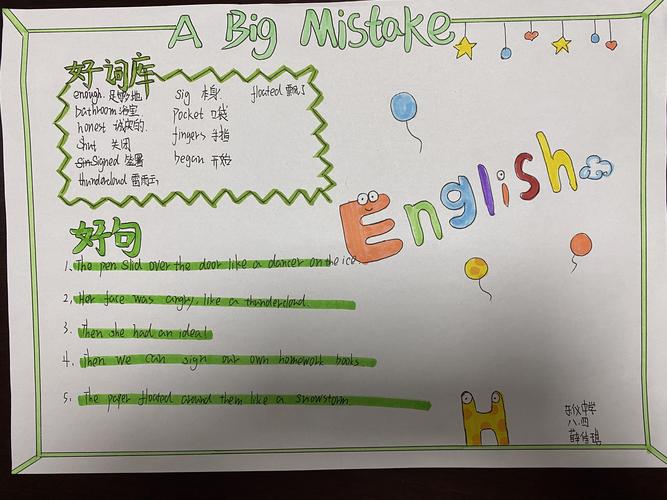 A Big Mistake
好词库
enough 足够地
bathroom 浴室
honest 诚实的
shut 关闭
Signed 签署
thundercloud 雷雨云
sig 本身
pocket 口袋
fingers 手指
began 开始
floated 飘
English
好句
1. The pen slid over the door like a dancer on the ice.
2. Her face was angry, like a thundercloud.
3. Then she had an idea!
4. Then we can sign our own homework books.
5. The paper floated around them like a snowstorm.
H
中学
八.四